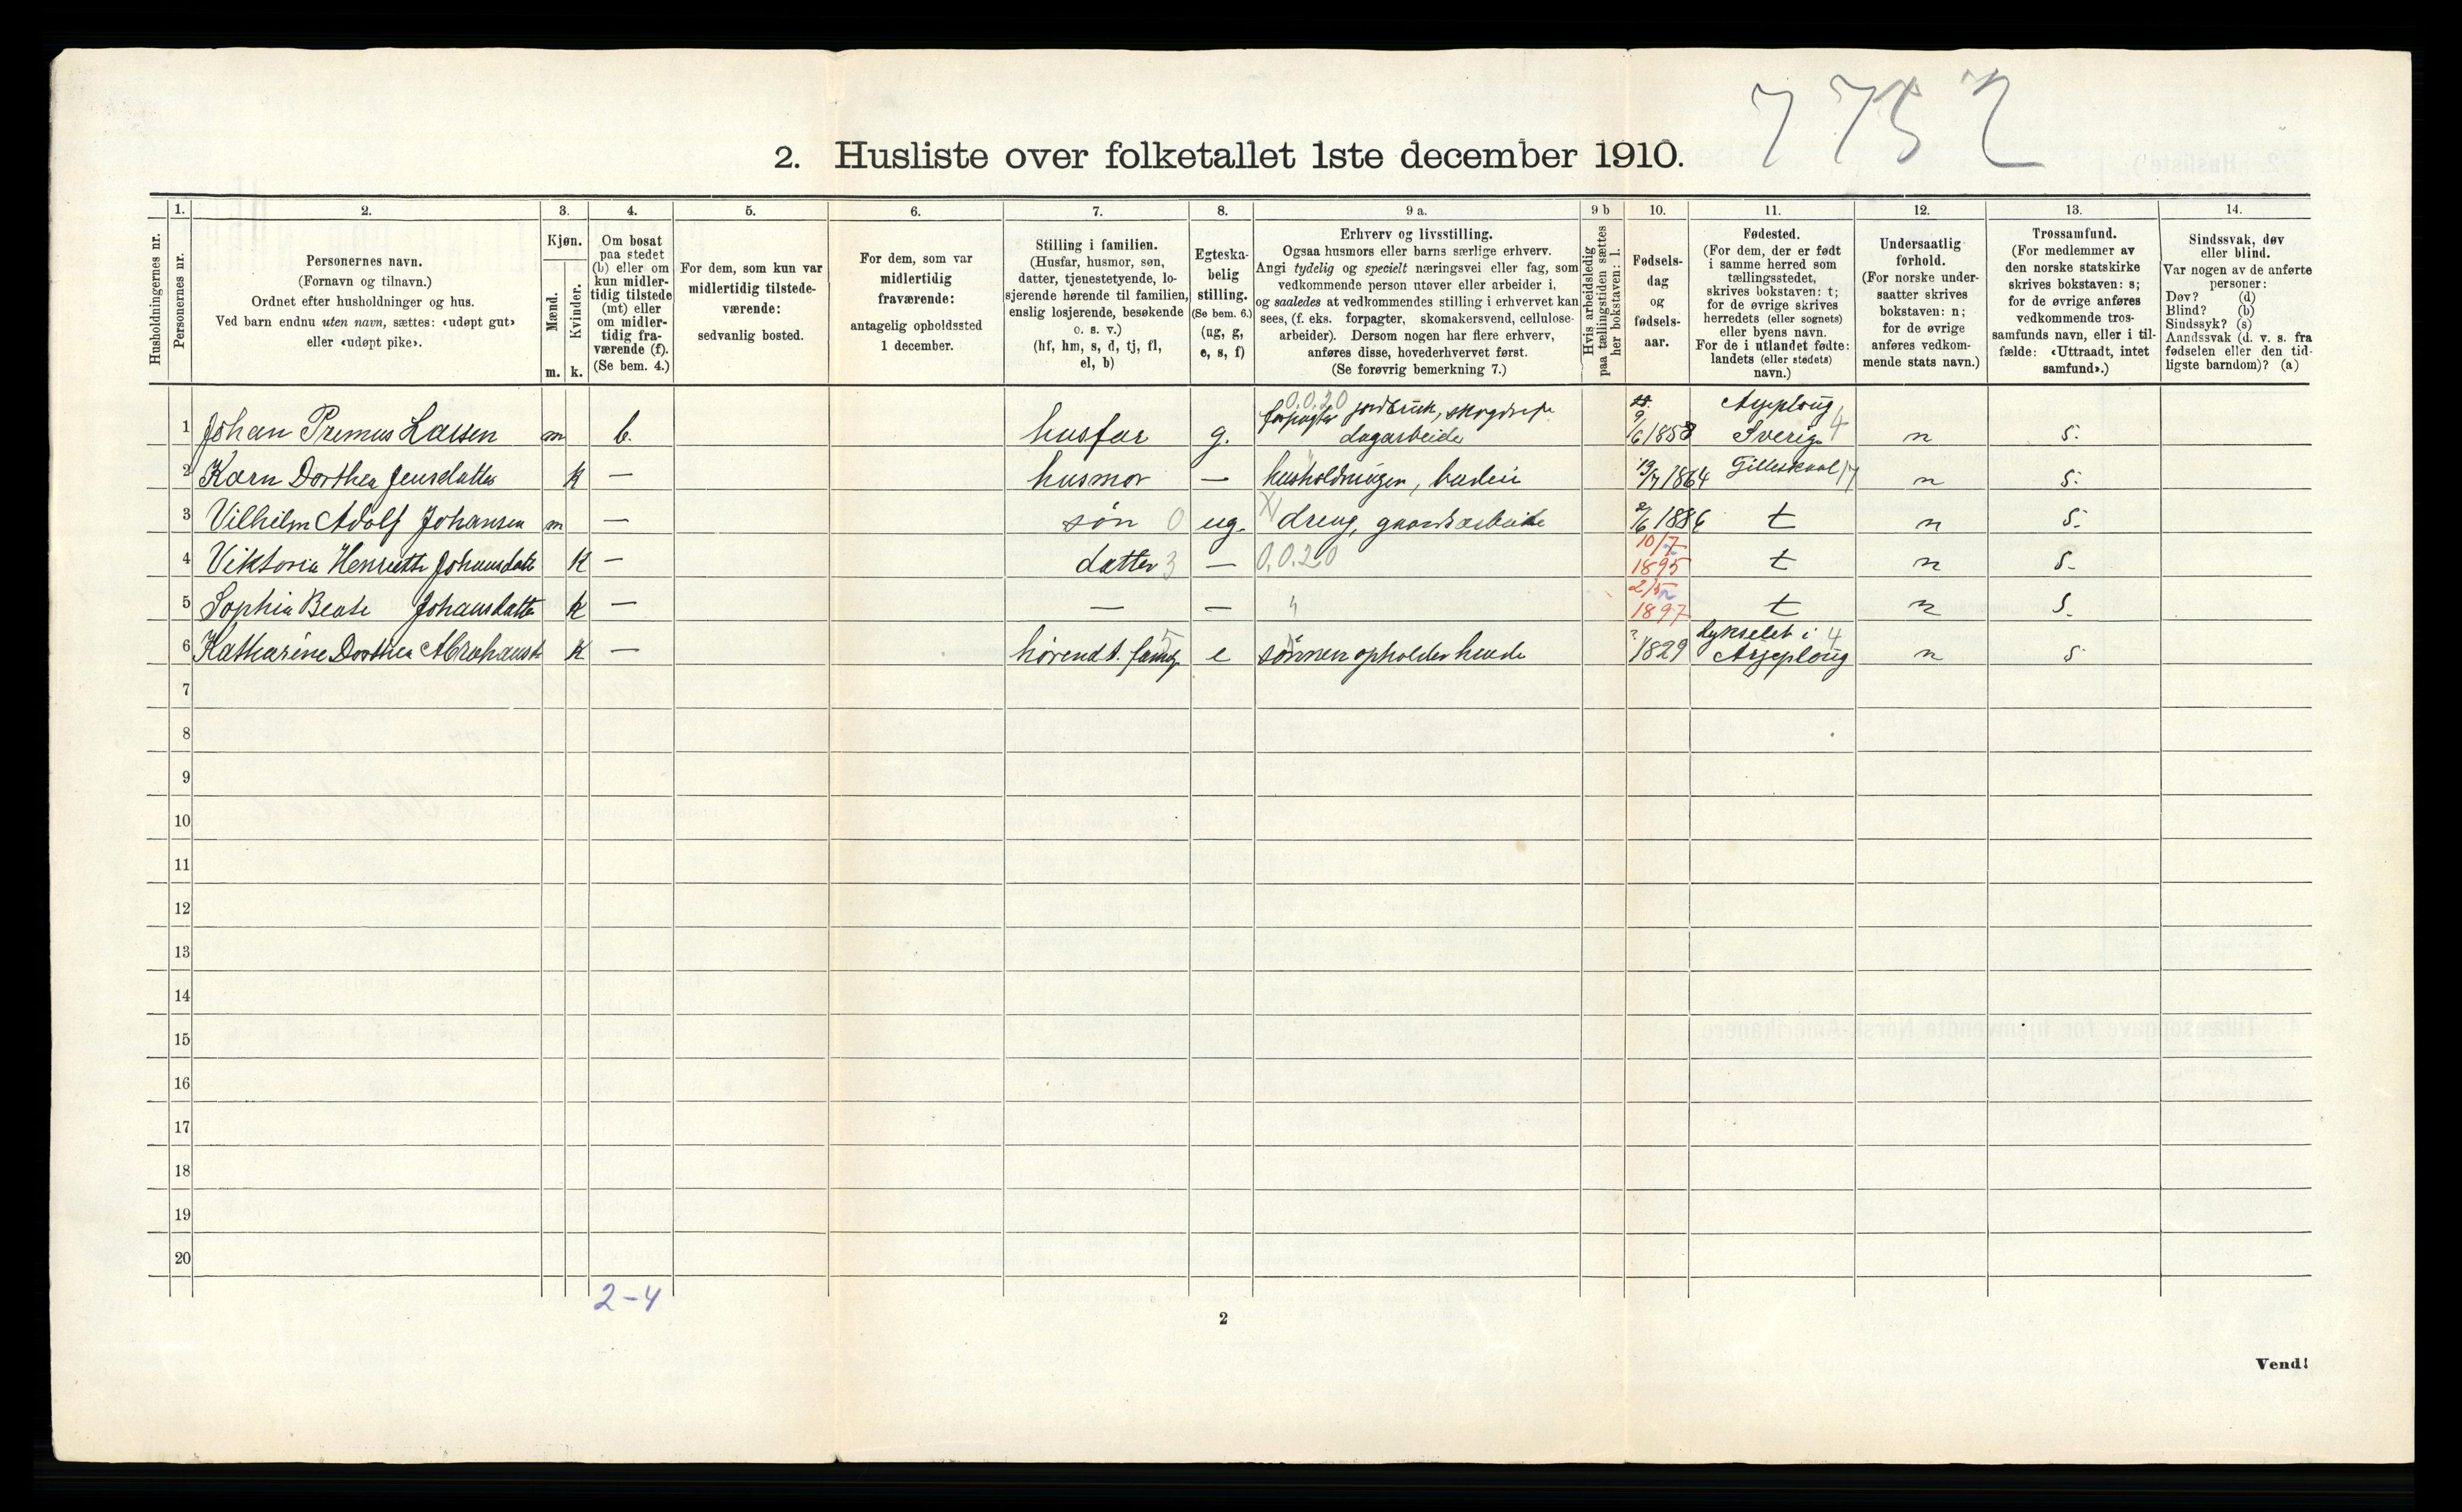 7752
2. Husliste over folketallet 1ste december 1910.
Husholdningernes nr.
1. Personernes nr.
2. Personernes navn.
(Fornavn og tilnavn.)
Ordnet efter husholdninger og hus.
Ved barn endnu uten navn, sættes: «udøpt gut»
eller «udøpt pike».
3. Kjøn.
Mænd. m.
Kvinder. k.
4. Om bosat
paa stedet
(b) eller om
kun midler-
tidig tilstede
(mt) eller
om midler-
tidig fra-
værende (f).
(Se bem. 4.)
5. For dem, som kun var
midlertidig tilstede-
værende:
sedvanlig bosted.
6. For dem, som var
midlertidig
fraværende:
antagelig opholdssted
1 december.
7. Stilling i familien.
(Husfar, husmor, søn,
datter, tjenestetyende, lo-
sjerende hørende til familien,
enslig losjerende, besøkende
o. s. v.)
(hf, hm, s, d, tj, fl,
el, b)
8. Egteska-
belig
stilling.
(Se bem. 6.)
(ug, g,
e, s, f)
9 a. Erhverv og livsstilling.
Ogsaa husmors eller barns særlige erhverv.
Angi tydelig og specielt næringsvei eller fag, som
vedkommende person utøver eller arbeider i,
og saaledes at vedkommendes stilling i erhvervet kan
sees, (f. eks. forpagter, skomakersvend, cellulose-
arbeider). Dersom nogen har flere erhverv,
anføres disse, hovederhvervet først.
(Se forøvrig bemerkning 7.)
9 b Hvis arbeidsledig
paa tællingstiden sættes
her bokstaven: l.
10. Fødsels-
dag
og
fødsels-
aar.
11. Fødested.
(For dem, der er født
i samme herred som
tællingsstedet,
skrives bokstaven: t;
for de øvrige skrives
herredets (eller sognets)
eller byens navn.
For de i utlandet fødte:
landets (eller stedets)
navn.)
12. Undersaatlig
forhold.
(For norske under-
saatter skrives
bokstaven: n;
for de øvrige
anføres vedkom-
mende stats navn.)
13. Trossamfund.
(For medlemmer av
den norske statskirke
skrives bokstaven: s;
for de øvrige anføres
vedkommende tros-
samfunds navn, eller i til-
fælde: «Uttraadt, intet
samfund».)
14. Sindssvak, døv
eller blind.
Var nogen av de anførte
personer:
Døv? (d)
Blind? (b)
Sindssyk? (s)
Aandssvak (d. v. s. fra
fødselen eller den tid-
ligste barndom)? (a)
0.0.20
1 Johan Premus Larsen m b. husfar g. forpagter jordbruk, dagarbeide 9/6 1858 Sverige 4 n s.
2 Karn Dorthea Jensdatter k — husmor — husholdningen, 19/7 1864 Gilleskaal 17 n s.
3 Vilhelm Adolf Johansen m — søn 0 ug. X dreng, gaardsarbeide 2/6 1886 t n s.
4 Viktoria Henriette Johansdatt k — datter 3 — 0.0.20 10/7 1895 t n s.
5 Sophia Beate Johansdatter k — — — " 2/5 1897 t n s.
6 Katharine Dorthea Abrahamsd k — hørend t. family 5 e sønnen opholder hende ? 1829 lykselet i 4 Arjeploug n s
7
8
9
10
11
12
13
14
15
16
17
18
19
20
2-4
2
Vend!